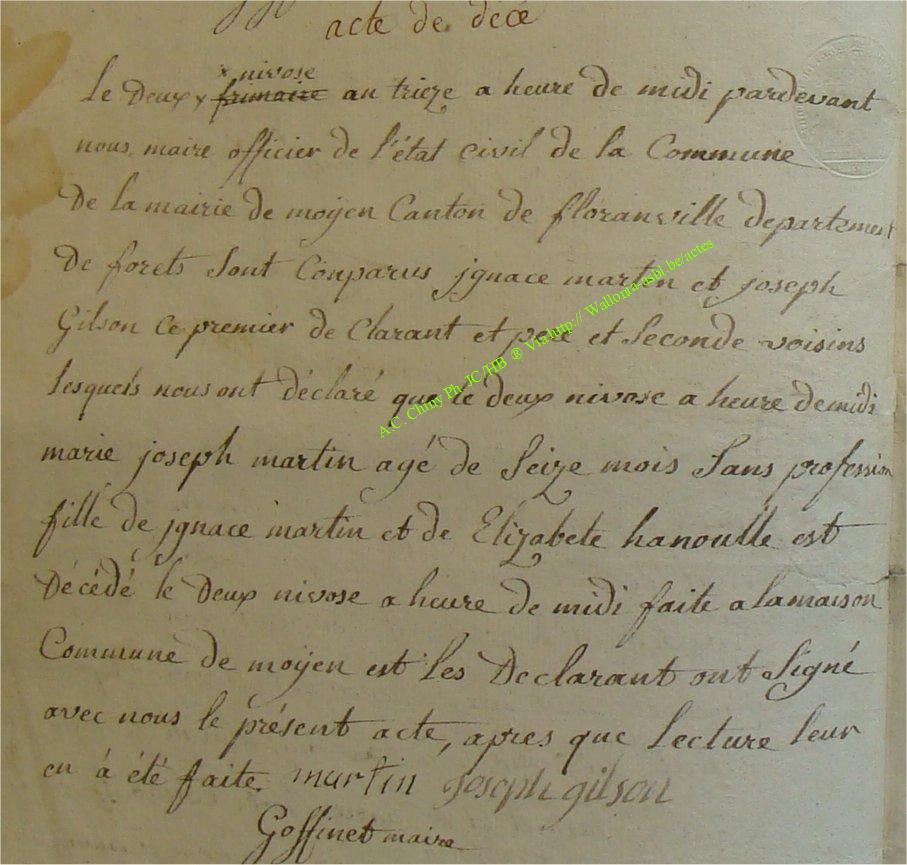 acte de décé
x nivose
Le Deux x frimaire an trieze a heure de midi pardevant
nous maire officier de l'état civil de la Commune
De la mairie de moyen Canton de floranville departement
De forets Sont Conparus jgnace martin et joseph
Gilson ce premier de Clarant et pere et Seconde voisins
lesquels nous ont déclaré que le deux nivose a heure demidi
marie joseph martin agé de Seize mois Sans profession
fille de jgnace martin et de Elizabete hanoulle est
Décédé le Deux nivose a heure de midi faite a lamaison
Commune de moyen est Les Declarant ont Signé
avec nous le présent acte, apres que Lecture leur
en à été faite. martin joseph gilson
Goffinet maire
A.C. Chiny Ph. JC /HB ® Via http:// Wallonia-asbl.be/actes